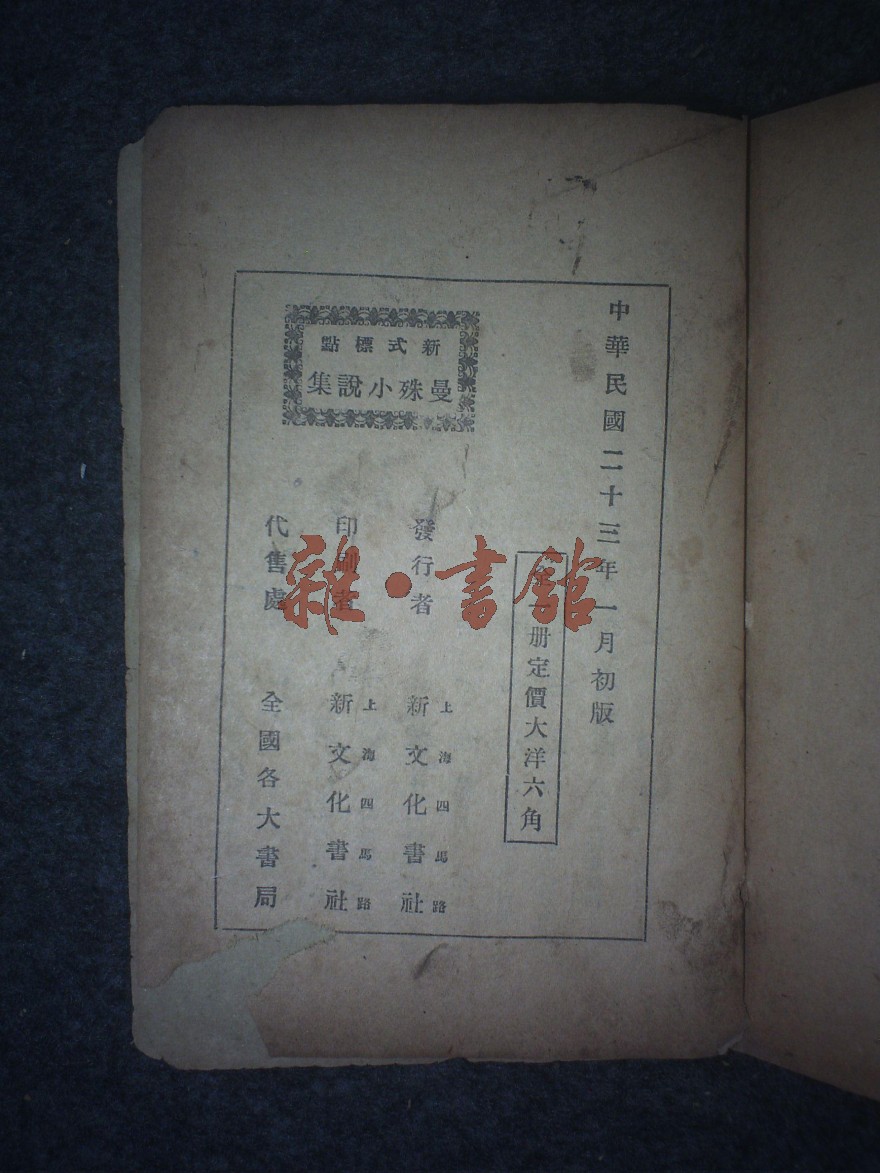 中華民國二十三年一月初版
全一册定價大洋六角
新式標點
曼殊小說集
發行者
上海四馬路
新文化書社
印刷者
上海四馬路
新文化書社
代售處
全國各大書局
雜·書館